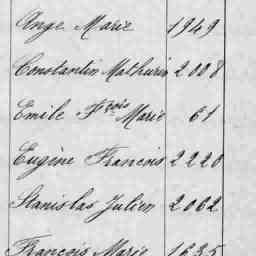 Ange Marie 1949
Constantin Mathurin 2008
Emile Fçois Marie 61
Eugène Francois 2220
Stanislas Julien 2062
François Marie 1635